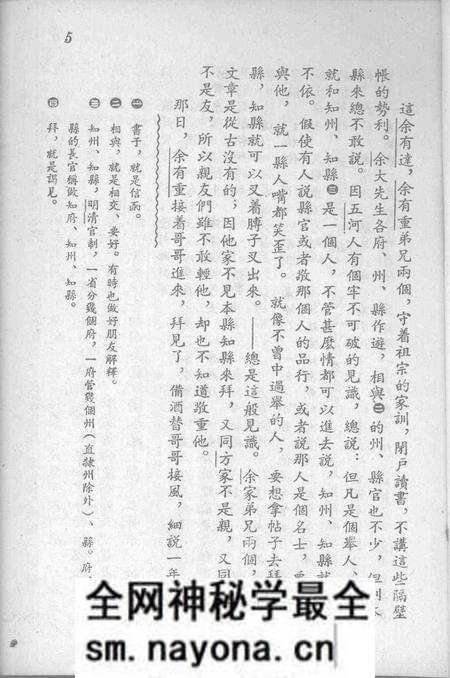 這余有達，余有重弟兄兩個，守着祖宗的家訓，閉戶讀書，不講這些隔壁
帳的勢利。余大先生各府、州、縣作遊，相與㊁的州、縣官也不少，但到本
縣來總不敢說。因五河人有個牢不可破的見識，總說：但凡是個舉人、
就和知州、知縣㊂是一個人，不管甚麼情都可以進去說，知州、知縣就
不依。假使有人說縣官或者敬那個人的品行，或者說那人是個名士，要
與他，就一縣人嘴都笑歪了。就像不曾中過舉的人，要想拿帖子去拜
縣，知縣就可以叉着膊子叉出來。——總是這般見識。余家弟兄兩個，
文章是從古沒有的；因他家不見本縣知縣來拜，又同方家不是親，又同
不是友，所以親友們雖不敢輕他，却也不知道敬重他。
那日，余有重接着哥哥進來，拜見了，備酒替哥哥接風，細說一年
㊀ 書子，就是信函。
㊁ 相與，就是相交、要好。有時也做好朋友解釋。
㊂ 知州、知縣，明清官制，一省分幾個府，一府管幾個州（直隸州除外）、縣。府、
縣的長官稱做知府、知州、知縣。
㊃ 拜，就是謁見。
5
全网神秘学最全
sm.nayona.cn